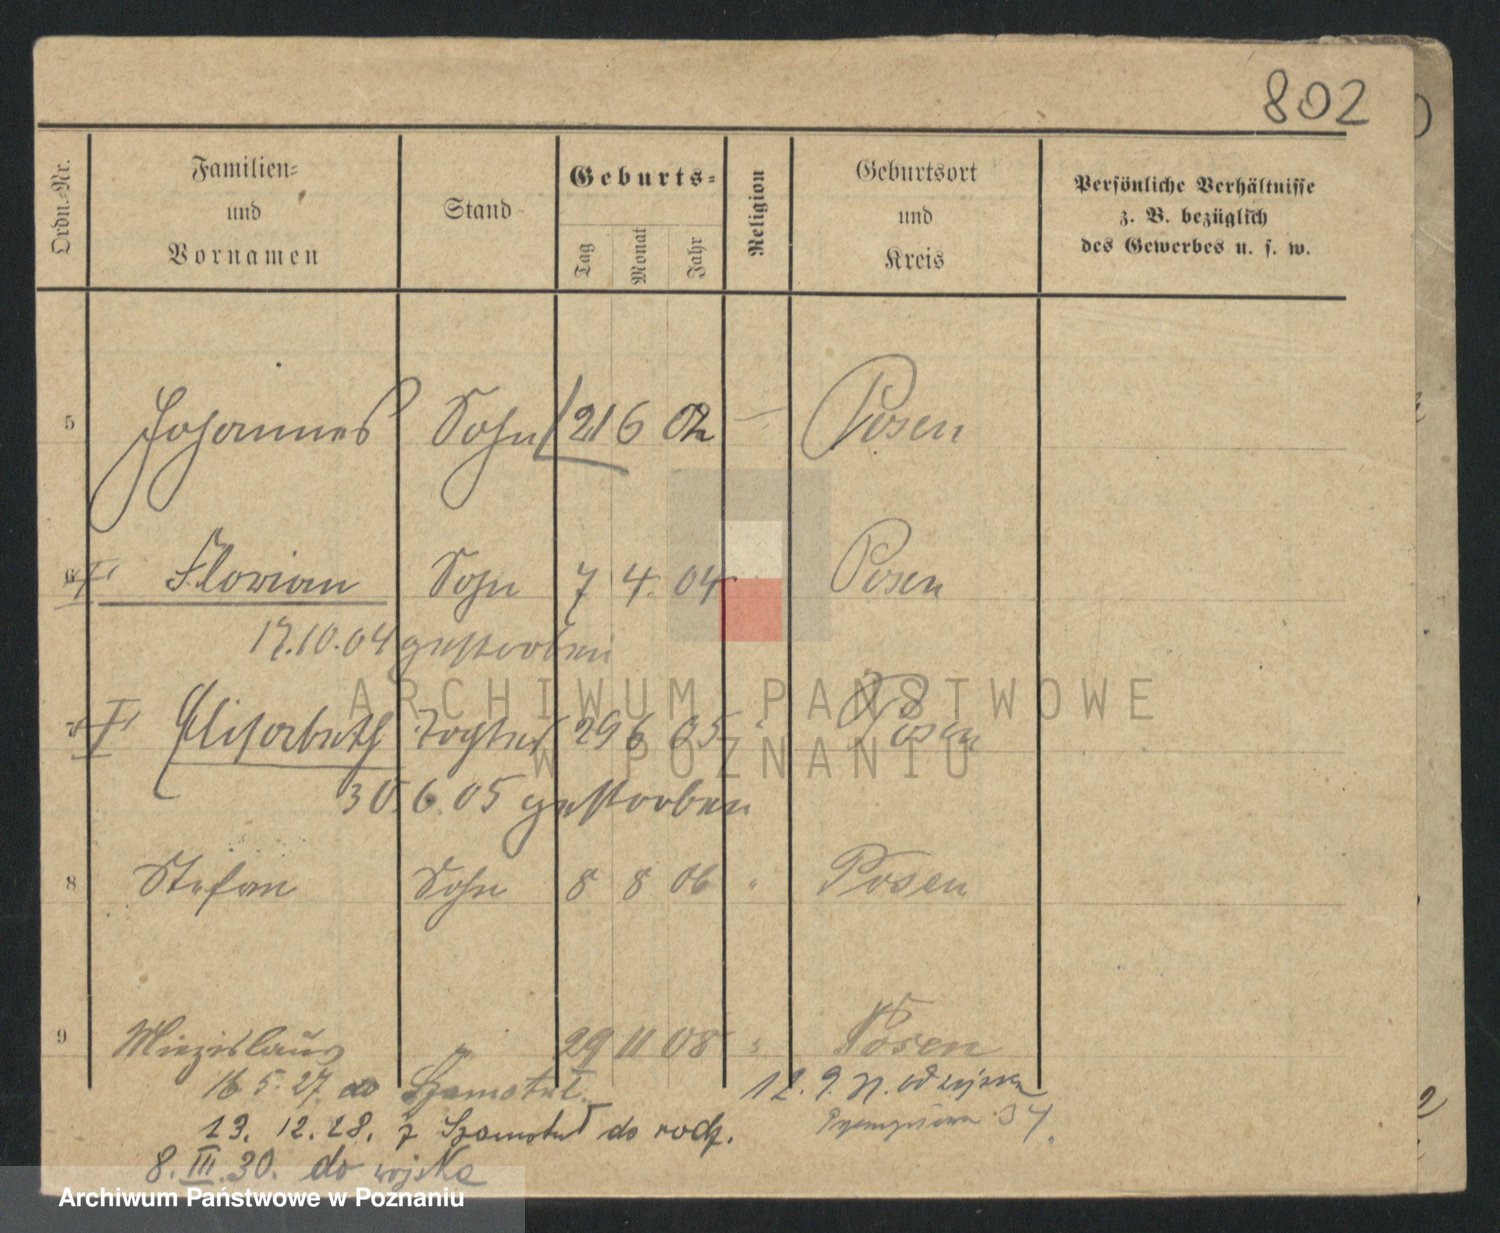 802
Ordn.-Nr.
Familien-
und
Vornamen
Stand
Geburts-
Tag
Monat
Jahr
Religion
Geburtsort
und
Kreis
Persönliche Verhältnisse
z. B. bezüglich
des Gewerbes u. s. w.
5 Johannes Sohn 21 6 02 — Posen
6 Florian Sohn 7 4. 04 Posen
17.10.04 gestorben
7 Elisabeth Tochter 29 6 05 " Posen
30.6.05 gestorben
8 Stefan Sohn 8 8 06 " Posen
9 Miezislaus " 29 11 08 " Posen
16 5. 27. do Szamotuł.
12. 9. 31. od wojska
13. 12. 28. z Szamotuł do rodz.
34.
8. III. 30. do wojska
ARCHIWUM PAŃSTWOWE
W POZNANIU
Archiwum Państwowe w Poznaniu